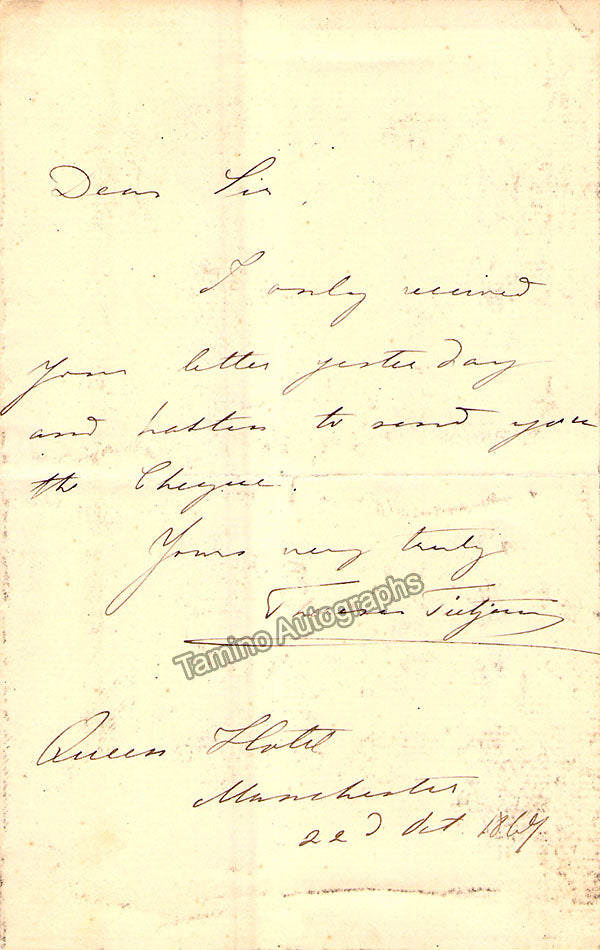 Dear Sir,
I only received
your letter yesterday
and hasten to send you
the Cheque.
Yours very truly
Teresa Tietjens
Tamino Autographs
Queens Hotel
Manchester
22d Oct. 1867.